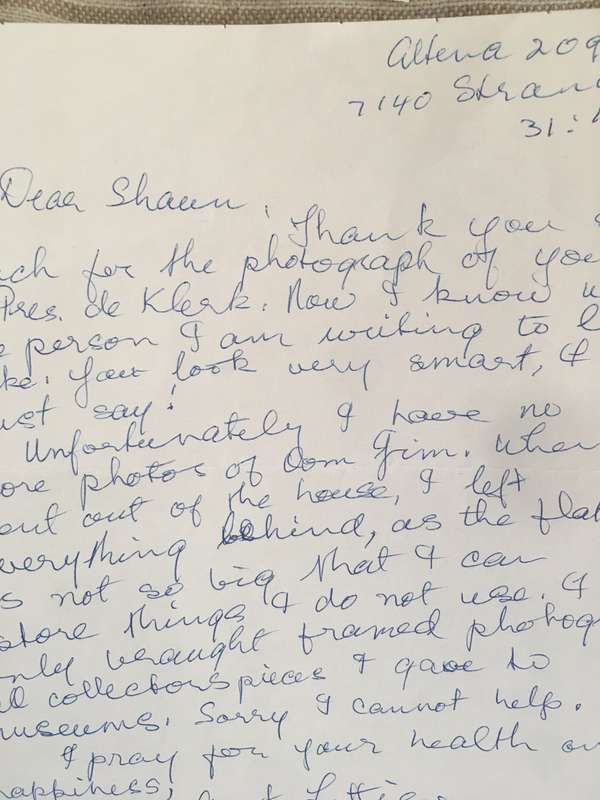 Altena 209
7140 Stran
31:
Dear Shaun,
Thank you s
uch for the photograph of you
Pres. de Klerk. Now I know w
e person I am writing to l
ke. You look very smart, I
ust say!
Unfortunately I have no
ore photos of Oom Jim. When
out of the house, I left
verything behind, as the flat
s not so big that I can
store things I do not use. I
nly braught framed photogr
ll collectorspieces I gave to
museums. Sorry I cannot help.
I pray for your health an
happiness,